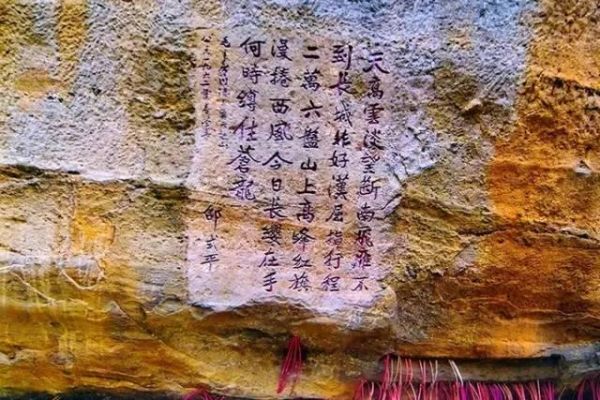 天高雲淡望斷南飛雁不
到长城非好漢屈指行程
二萬六盤山上高峰紅旗
漫捲西風今日长纓在手
何時縛住蒼龍